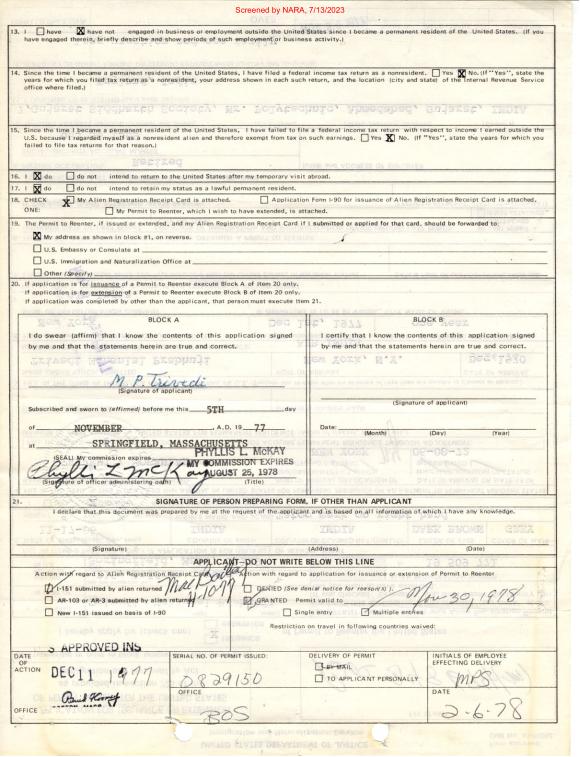 Screened by NARA, 7/13/2023
13. I ☐ have ☒ have not engaged in business or employment outside the United States since I became a permanent resident of the United States. (If you
have engaged therein, briefly describe and show periods of such employment or business activity.)
14. Since the time I became a permanent resident of the United States, I have filed a federal income tax return as a nonresident. ☐ Yes ☒ No. (If "Yes", state the
years for which you filed tax return as a nonresident, your address shown in each such return, and the location (city and state) of the Internal Revenue Service
office where filed.)
15. Since the time I became a permanent resident of the United States, I have failed to file a federal income tax return with respect to income I earned outside the
U.S. because I regarded myself as a nonresident alien and therefore exempt from tax on such earnings. ☐ Yes ☒ No. (If "Yes", state the years for which you
failed to file tax returns for that reason.)
16. I ☒ do ☐ do not intend to return to the United States after my temporary visit abroad.
17. I ☒ do ☐ do not intend to retain my status as a lawful permanent resident.
18. CHECK ☒ My Alien Registration Receipt Card is attached. ☐ Application Form I-90 for issuance of Alien Registration Receipt Card is attached.
ONE: ☐ My Permit to Reenter, which I wish to have extended, is attached.
19. The Permit to Reenter, if issued or extended, and my Alien Registration Receipt Card if I submitted or applied for that card, should be forwarded to:
☒ My address as shown in block #1, on reverse.
☐ U.S. Embassy or Consulate at
☐ U.S. Immigration and Naturalization Office at
☐ Other (Specify)
20. If application is for issuance of a Permit to Reenter execute Block A of Item 20 only.
If application is for extension of a Permit to Reenter execute Block B of Item 20 only.
If application was completed by other than the applicant, that person must execute Item 21.
BLOCK A
I do swear (affirm) that I know the contents of this application signed
by me and that the statements herein are true and correct.
M. P. Trivedi
(Signature of applicant)
Subscribed and sworn to (affirmed) before me this 5TH day
of NOVEMBER , A.D. 19 77
at SPRINGFIELD, MASSACHUSETTS
PHYLLIS L. McKAY
(SEAL) My commission expires MY COMMISSION EXPIRES
Phyllis L McKay AUGUST 25, 1978
(Signature of officer administering oath) (Title)
BLOCK B
I certify that I know the contents of this application signed
by me and that the statements herein are true and correct.
(Signature of applicant)
Date:
(Month) (Day) (Year)
21. SIGNATURE OF PERSON PREPARING FORM, IF OTHER THAN APPLICANT
I declare that this document was prepared by me at the request of the applicant and is based on all information of which I have any knowledge.
(Signature) (Address) (Date)
APPLICANT—DO NOT WRITE BELOW THIS LINE
Action with regard to Alien Registration Receipt Card
☒ I-151 submitted by alien returned
☐ AR-103 or AR-3 submitted by alien returned
☐ New I-151 issued on basis of I-90
Action with regard to application for issuance or extension of Permit to Reenter
☐ DENIED (See denial notice for reasons).
☒ GRANTED Permit valid to Nov 30, 1978
☐ Single entry ☒ Multiple entries
Restriction on travel in following countries waived:
APPROVED INS
DATE
OF
ACTION
DEC 11 1977
OFFICE
SERIAL NO. OF PERMIT ISSUED:
0829150
OFFICE
BOS
DELIVERY OF PERMIT
☒ BY MAIL
☐ TO APPLICANT PERSONALLY
INITIALS OF EMPLOYEE
EFFECTING DELIVERY
MPS
DATE
2-6-78